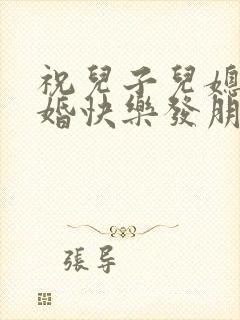 祝兒子兒媳
婚快樂發朋
張導